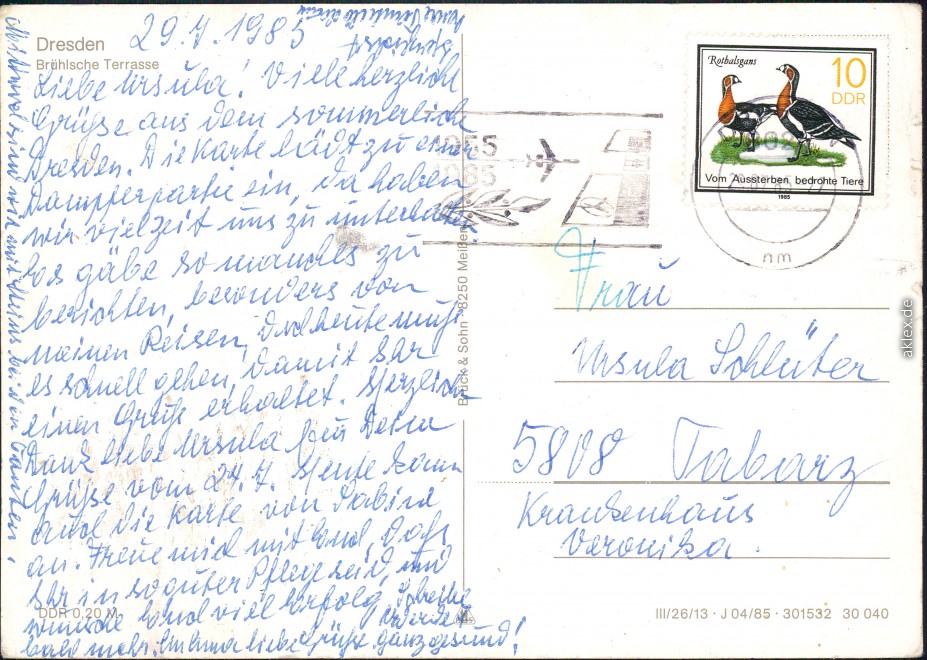 Dresden
Brühlsche Terrasse
29.7.1985
Liebe Ursula! Viele herzliche
Grüße aus dem sommerlich
Dresden. Die Karte lädt zu einer
Dampferpartie ein, da haben
wir viel Zeit uns zu unterhalt.
Es gäbe so manches zu
berichten, besonders von
meinen Reisen, Doch heute muß
es schnell gehen, damit Ihr
einen Gruß erhaltet. Herzlich
Dank liebe Ursula für Deine
Grüße vom 24.7. Heute kam
auch die Karte von Sabine
an. Freue mich mit Euch, daß
Ihr in so guter Pflege seid, und
wünsche Euch viel Erfolg. Schreibe
bald mehr. liebe Grüße ganz gesund!
werde
DDR 0,20 M
Brück & Sohn · 8250 Meißen
1955
1985
Rothalsgans
10
DDR
Vom Aussterben bedrohte Tiere
1985
nm
Frau
Ursula Schlüter
5808 Tabarz
Krankenhaus
Veronika.
III/26/13 · J 04/85 · 301532 30 040
aklex.de